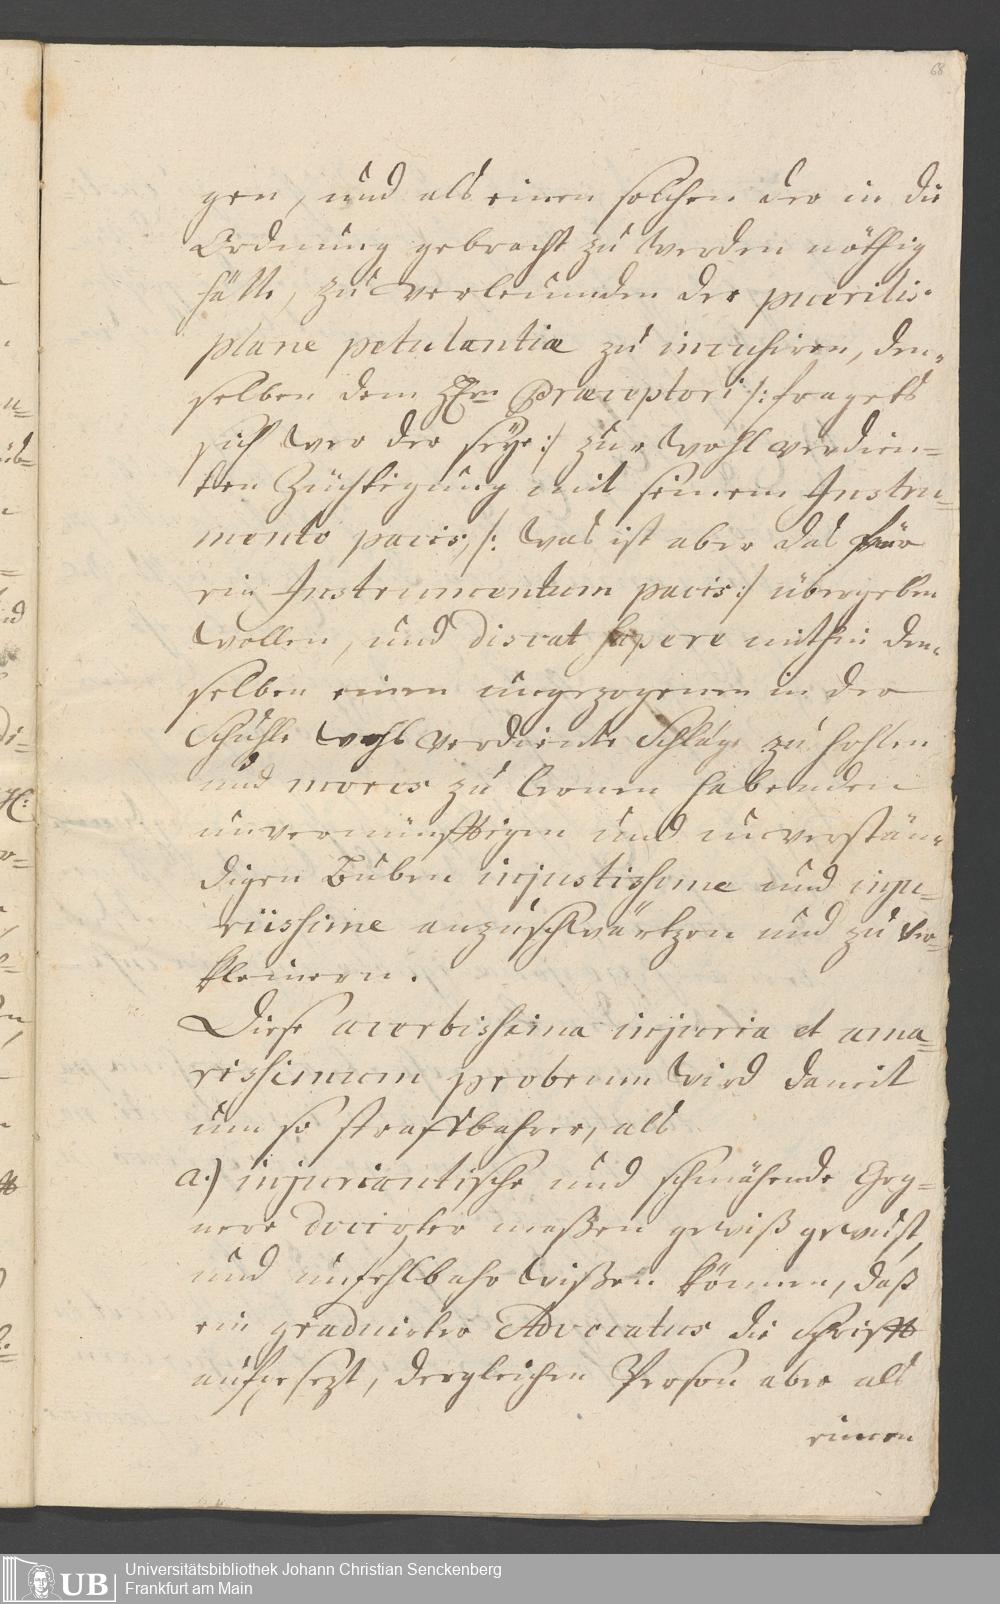 68
gen, und als einen solchen der in die
Ordnung gebracht zu werden nöthig
hätte, zu verleumden der puerilis
plane petulantiæ zu incusiren, den=
selben dem Hr̃n Præceptori /: fragets
sich wer der seye :/ zur wohl verdien=
ten Züchtigung mit seinem Instru=
mento pacis, /: was ist aber das für
ein Instrumentum pacis :/ übergeben
wollen, und discat sapere mithin den=
selben einen ungezogenen in der
Schuhle wohl verdiente Schläge zu hohlen
und mores zu lernen habenden
unvernünfftigen und unverstän=
digen Buben injustissime und inju=
riissime anzuschwärtzen und zu ver=
kleinern.
Diese acerbissima injuria et ama=
rissimum probrum wird damit
um so straffbahrer, als
a.) injuriantische und schmähende Geg=
nere docirter maßen gewiß gewust,
und unfehlbahr wißen können, daß
ein graduirter Advocatus die Schrifft
aufgesezt, dergleichen Person aber als
einen
UB
Universitätsbibliothek Johann Christian Senckenberg
Frankfurt am Main